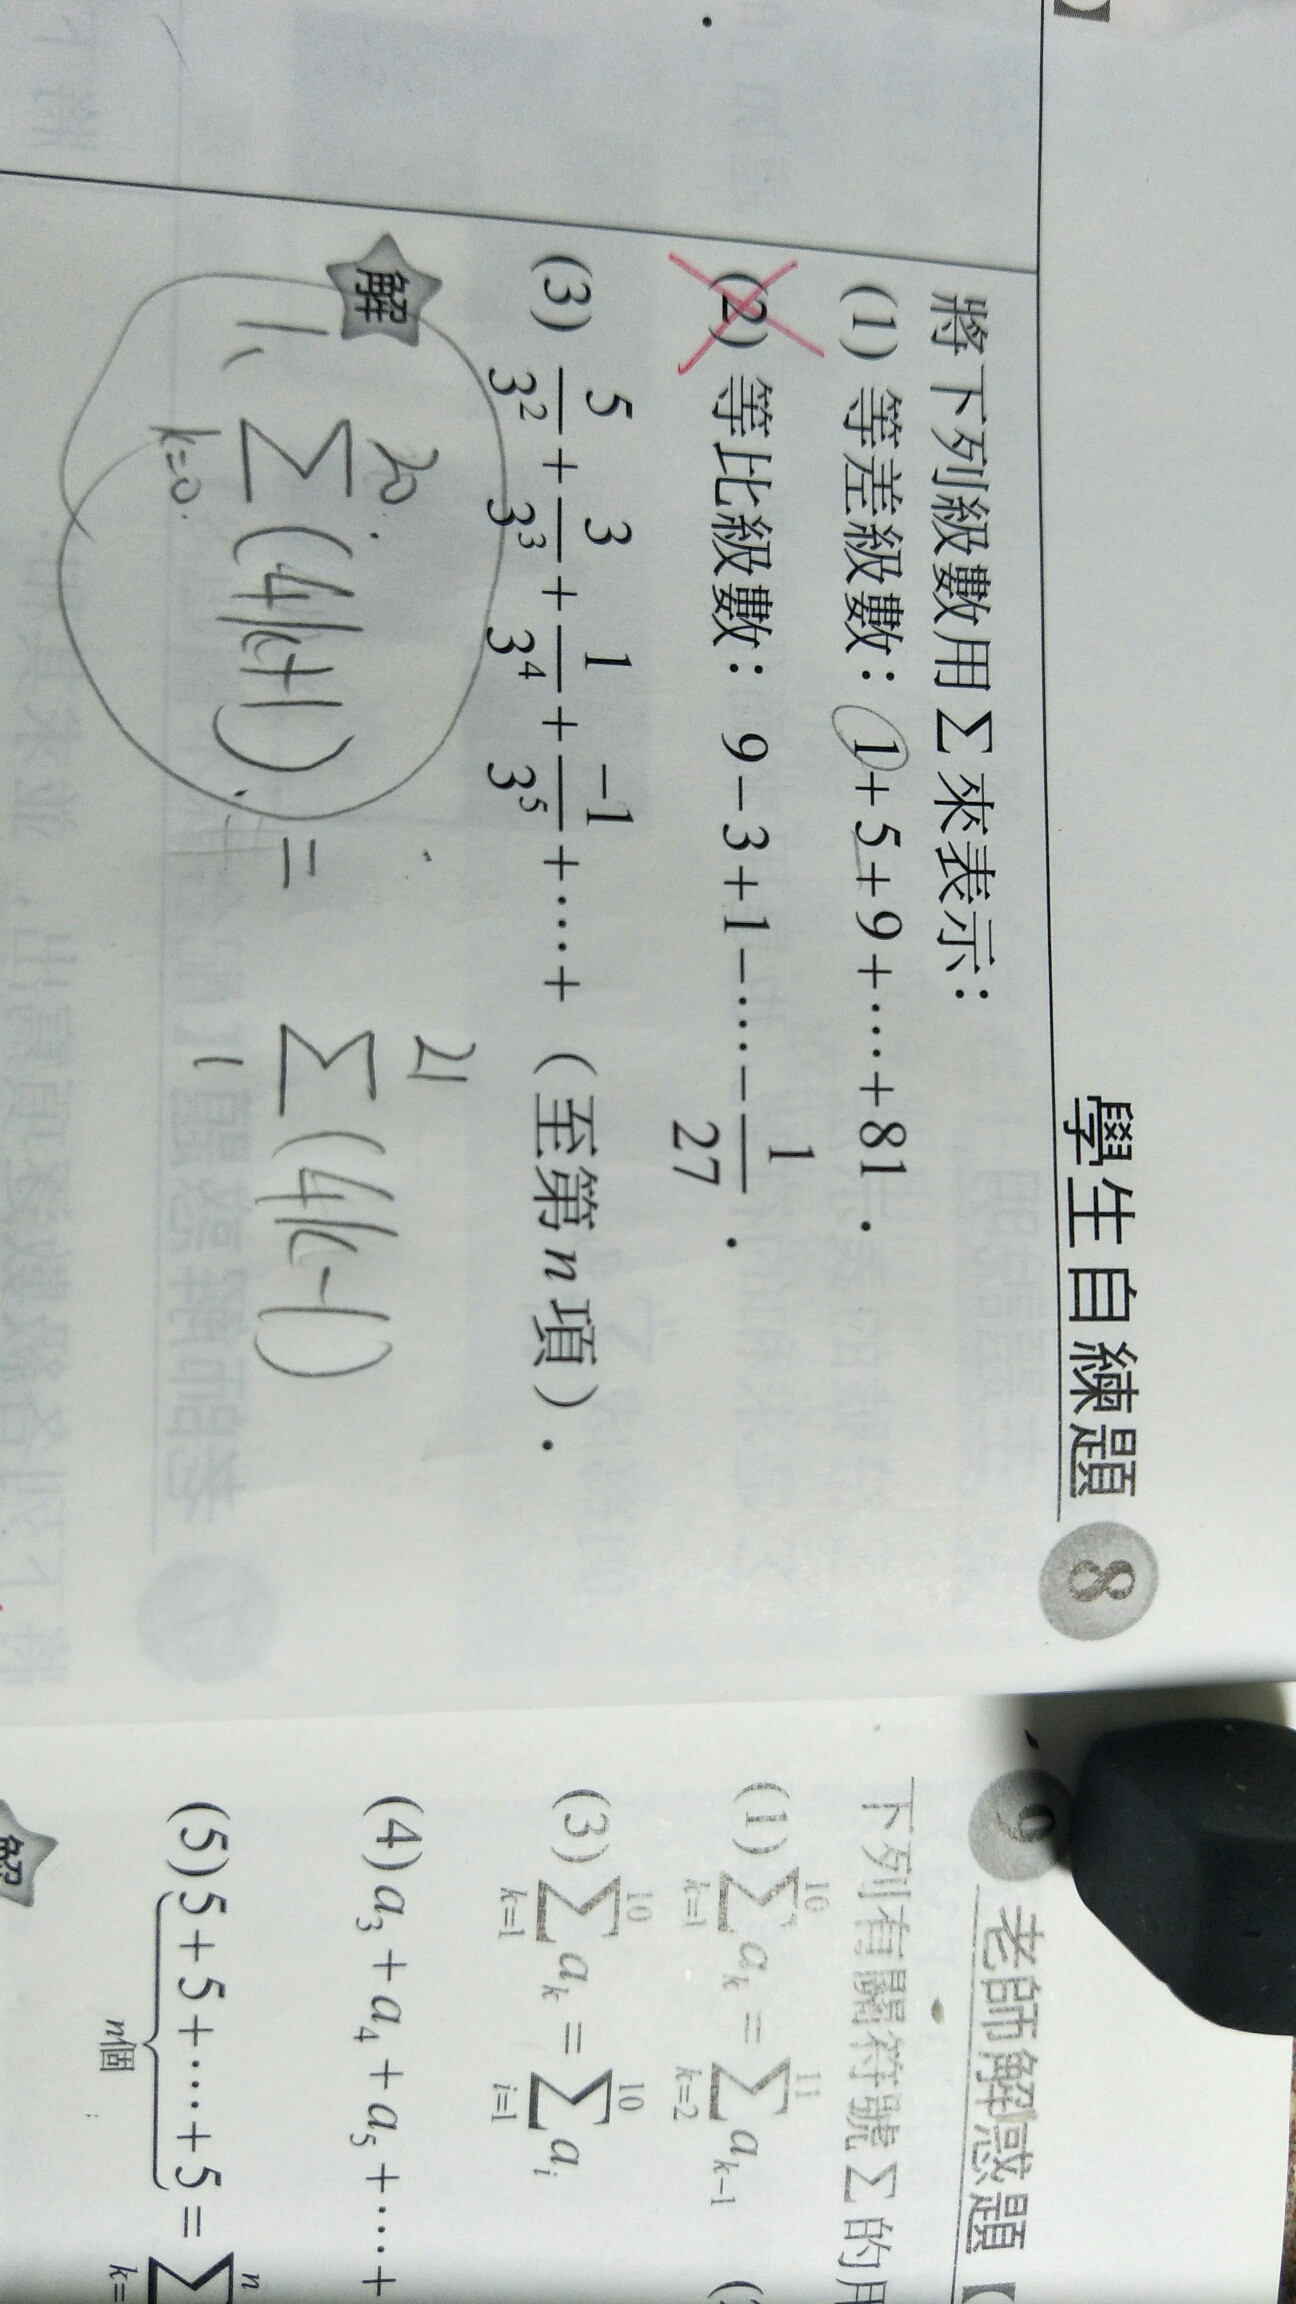 學生自練題 8
將下列級數用 Σ 來表示：
(1) 等差級數：1+5+9+⋯+81．
(2) 等比級數：9−3+1−⋯−1/27．
(3) 5/3² + 3/3³ + 1/3⁴ + −1/3⁵ +⋯+（至第 n 項）．
解
1、 Σ_{k=0}^{20} (4k+1) = Σ_{1}^{21} (4k−1)
9 老師解惑題【
下列有關符號 Σ 的用
(1) Σ_{k=1}^{10} a_k = Σ_{k=2}^{11} a_{k−1}
(3) Σ_{k=1}^{10} a_k = Σ_{i=1}^{10} a_i
(4) a₃+a₄+a₅+⋯+
(5) 5+5+⋯+5 = Σ_{k=}^{n}
n個
解